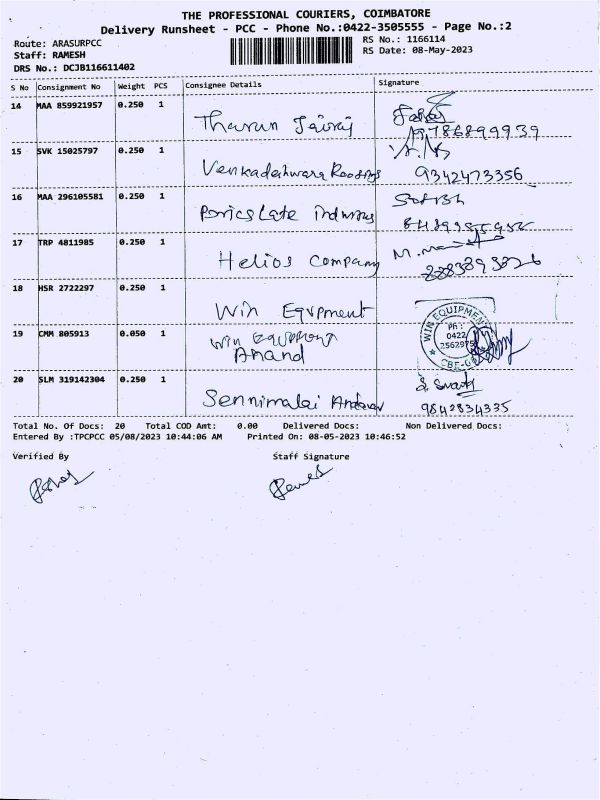 THE PROFESSIONAL COURIERS, COIMBATORE
Delivery Runsheet - PCC - Phone No.:0422-3505555 - Page No.:2
Route: ARASURPCC
Staff: RAMESH
DRS No.: DCJB116611402
RS No.: 1166114
RS Date: 08-May-2023
S No Consignment No Weight PCS Consignee Details Signature
14 MAA 859921957 0.250 1 Tharun Jairaj
9786899939
15 SVK 15025797 0.250 1 Venkadeshwara Roofings
9342473356
16 MAA 296105581 0.250 1 Sathish
17 TRP 4811985 0.250 1 Helios Company
18 HSR 2722297 0.250 1 Win Equpment
WIN EQUIPMENT
Ph :
0422
2562975
19 CMM 805913 0.050 1 Win Equpment
Anand
20 SLM 319142304 0.250 1 Sennimalai Andavar
9842834335
Total No. Of Docs: 20 Total COD Amt: 0.00 Delivered Docs: Non Delivered Docs:
Entered By :TPCPCC 05/08/2023 10:44:06 AM Printed On: 08-05-2023 10:46:52
Verified By Staff Signature